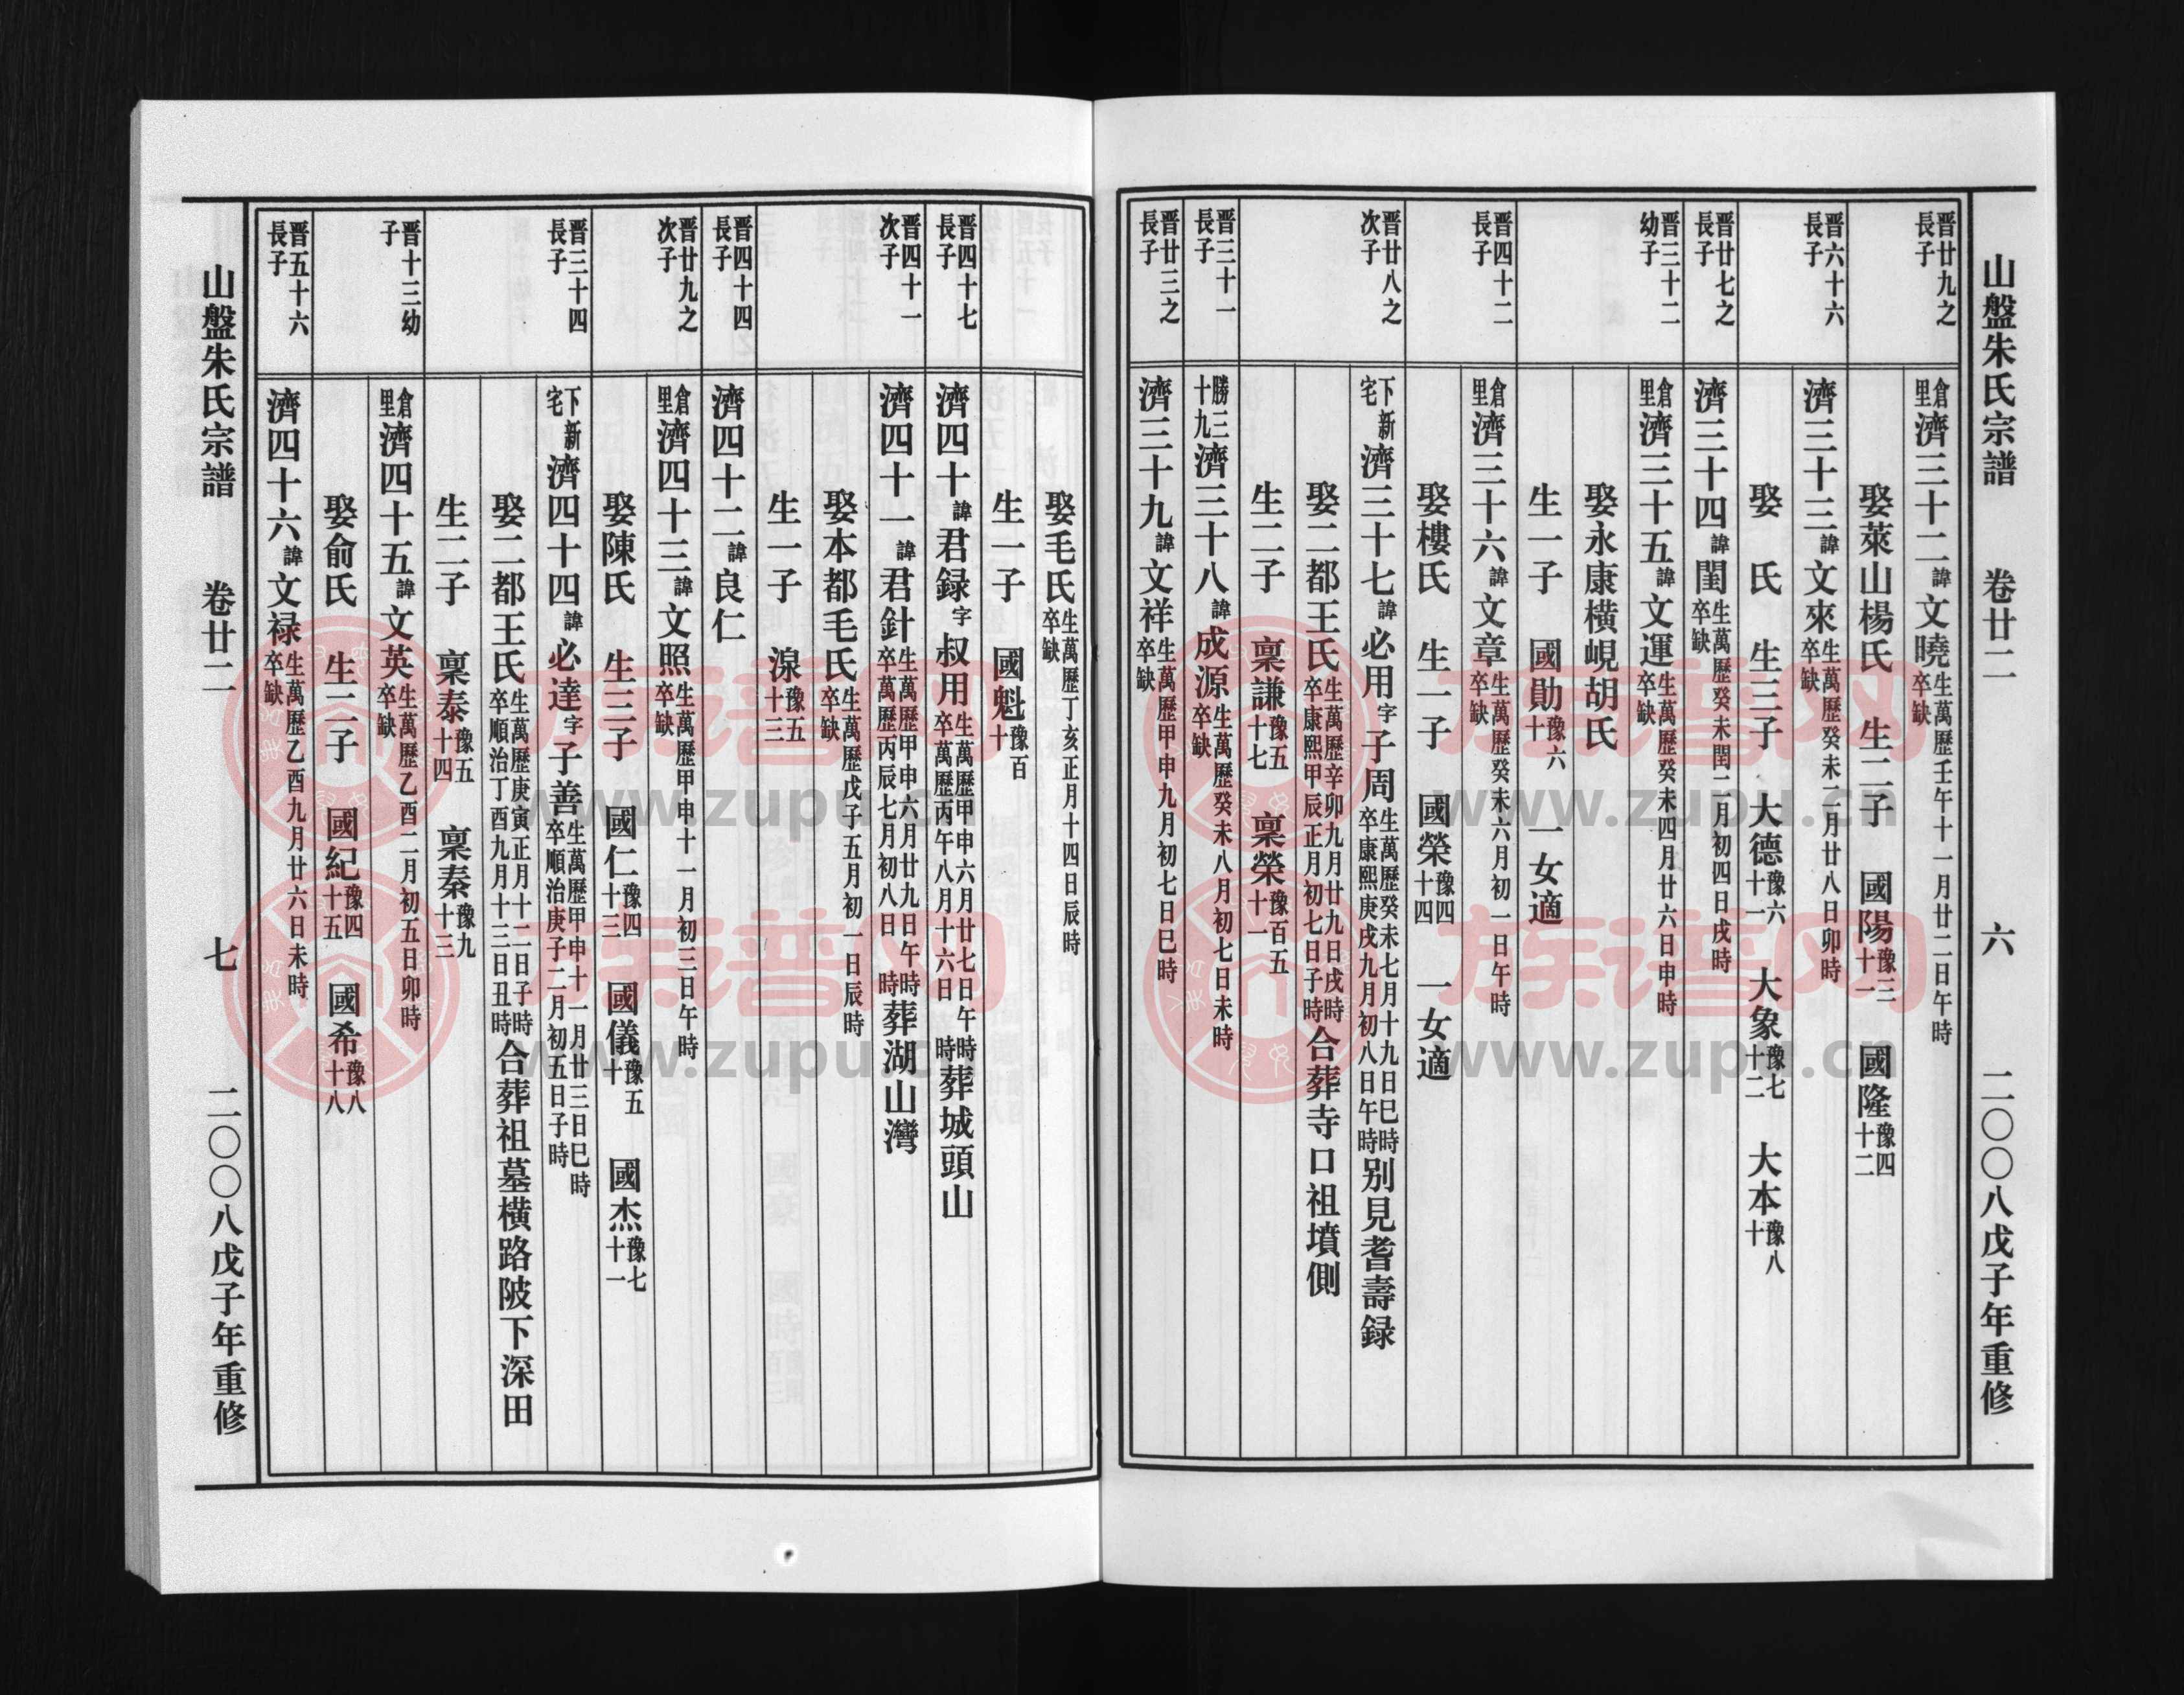 山盤朱氏宗譜 卷廿二 六 二〇〇八戊子年重修
晋廿九之長子
倉里濟三十二諱文曉生萬歷壬午十一月廿二日午時卒缺
娶萊山楊氏 生二子 國陽豫三十一 國隆豫四十二
晋六十六長子
濟三十三諱文來生萬歷癸未二月廿八日卯時卒缺
娶 氏 生三子 大德豫六十一 大象豫七十二 大本豫八十
晋廿七之長子
濟三十四諱閏生萬歷癸未閏二月初四日戌時卒缺
晋三十二幼子
倉里濟三十五諱文運生萬歷癸未四月廿六日申時卒缺
娶永康橫峴胡氏
生一子 國勛豫六十 一女適
晋四十二長子
倉里濟三十六諱文章生萬歷癸未六月初一日午時卒缺
娶樓氏 生一子 國榮豫四十四 一女適
晋廿八之次子
下新宅濟三十七諱必用字子周生萬歷癸未七月十九日巳時卒康熙庚戌九月初八日午時别見耆壽録
娶二都王氏生萬歷辛卯九月廿九日戌時卒康熙甲辰正月初七日子時合葬寺口祖墳側
生二子 稟謙豫五十七 稟榮豫百五十一
晋三十一長子
勝三十九濟三十八諱成源生萬歷癸未八月初七日未時卒缺
晋廿三之長子
濟三十九諱文祥生萬歷甲申九月初七日巳時卒缺
娶毛氏生萬歷丁亥正月十四日辰時卒缺
生一子 國魁豫百十
晋四十七長子
濟四十諱君録字叔用生萬歷甲申六月廿七日午時卒萬歷丙午八月十六日時葬城頭山
晋四十一次子
濟四十一諱君針生萬歷甲申六月廿九日午時卒萬歷丙辰七月初八日時葬湖山灣
娶本都毛氏生萬歷戊子五月初一日辰時卒缺
生一子 湶豫五十三
晋四十四長子
濟四十二諱良仁
晋廿九之次子
倉里濟四十三諱文照生萬歷甲申十一月初三日午時卒缺
娶陳氏 生三子 國仁豫四十三 國儀豫五十 國杰豫七十一
晋三十四長子
下新宅濟四十四諱必達字子善生萬歷甲申十一月廿三日巳時卒順治庚子二月初五日子時
娶二都王氏生萬歷庚寅正月十二日子時卒順治丁酉九月十三日丑時合葬祖墓橫路陂下深田
生二子 稟泰豫五十四 稟秦豫九十三
晋十三幼子
倉里濟四十五諱文英生萬歷乙酉二月初五日卯時卒缺
娶俞氏 生二子 國紀豫四十五 國希豫八十八
晋五十六長子
濟四十六諱文禄生萬歷乙酉九月廿六日未時卒缺
山盤朱氏宗譜 卷廿二 七 二〇〇八戊子年重修
族譜网
www.zupu.cn
族譜网
www.zupu.cn
族譜网
www.zupu.cn
族譜网
www.zupu.cn